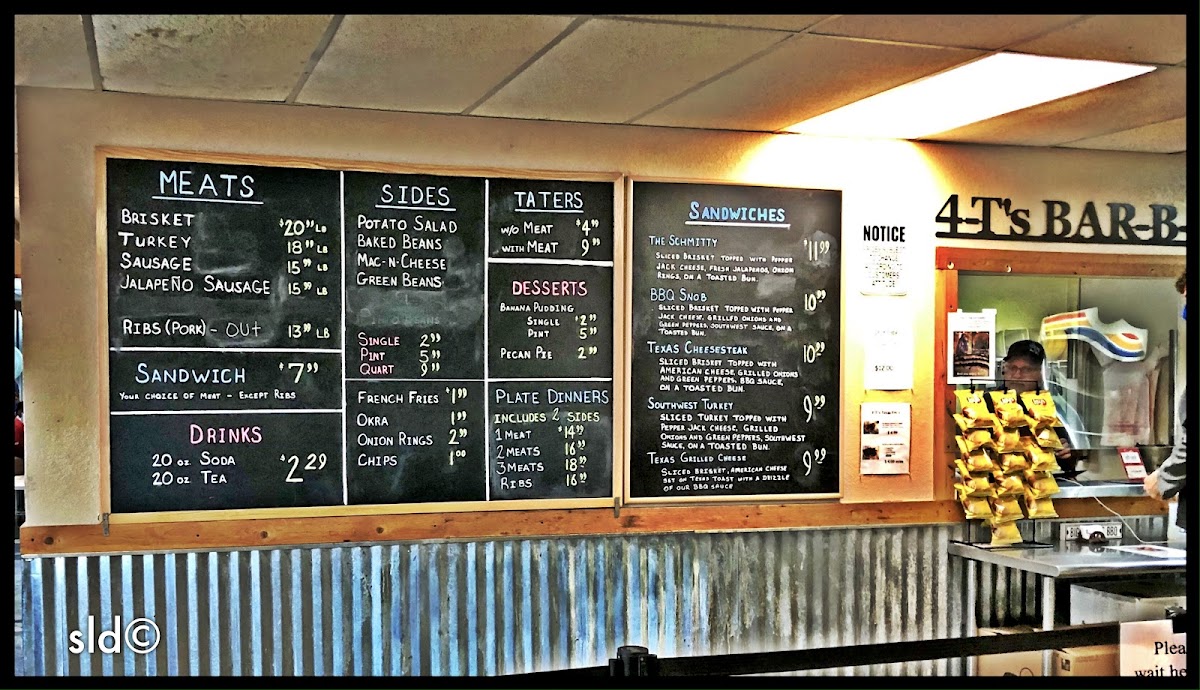 MEATS
BRISKET $20.99 LB
TURKEY 18.99 LB
SAUSAGE 15.99 LB
JALAPEÑO SAUSAGE 15.99 LB
RIBS (PORK) - OUT 13.99 LB
SANDWICH $7.99
YOUR CHOICE OF MEAT - EXCEPT RIBS
DRINKS
20 OZ SODA
20 OZ TEA
$2.29
SIDES
POTATO SALAD
BAKED BEANS
MAC-N-CHEESE
GREEN BEANS
SINGLE 2.99
PINT 5.99
QUART 9.99
FRENCH FRIES $1.99
OKRA 1.99
ONION RINGS 2.99
CHIPS 1.00
TATERS
W/O MEAT $4.99
WITH MEAT 9.99
DESSERTS
BANANA PUDDING
SINGLE $2.99
PINT 5.99
PECAN PIE 2.99
PLATE DINNERS
INCLUDES 2 SIDES
1 MEAT $14.99
2 MEATS 16.99
3 MEATS 18.99
RIBS 16.99
SANDWICHES
THE SCHMITTY $11.99
SLICED BRISKET TOPPED WITH PEPPER
JACK CHEESE, FRESH JALAPENOS, ONION
RINGS, ON A TOASTED BUN.
BBQ SNOB 10.99
SLICED BRISKET TOPPED WITH PEPPER
JACK CHEESE, GRILLED ONIONS AND
GREEN PEPPERS, SOUTHWEST SAUCE, ON A
TOASTED BUN.
TEXAS CHEESESTEAK 10.99
SLICED BRISKET TOPPED WITH
AMERICAN CHEESE, GRILLED ONIONS
AND GREEN PEPPERS, BBQ SAUCE,
ON A TOASTED BUN.
SOUTHWEST TURKEY 9.99
SLICED TURKEY TOPPED WITH
PEPPER JACK CHEESE, GRILLED
ONIONS AND GREEN PEPPERS, SOUTHWEST
SAUCE, ON A TOASTED BUN.
TEXAS GRILLED CHEESE 9.99
SLICED BRISKET, AMERICAN CHEESE
SET ON TEXAS TOAST WITH A DRIZZLE
OF OUR BBQ SAUCE
NOTICE
$12.00
4-T's BAR-B-
BIG BBQ
Plea
wait he
sld©